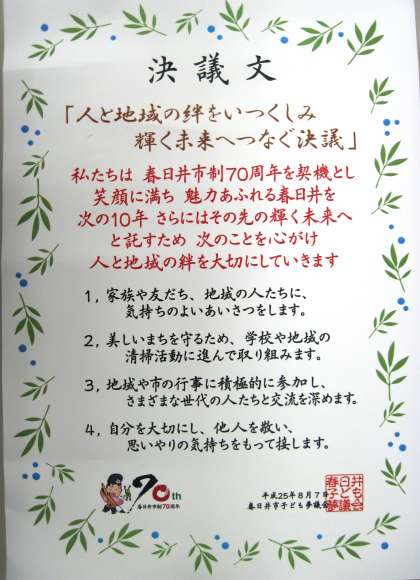 決議文
「人と地域の絆をいつくしみ
輝く未来へつなぐ決議」
私たちは 春日井市制70周年を契機とし
笑顔に満ち 魅力あふれる春日井を
次の10年 さらにはその先の輝く未来へ
と託すため 次のことを心がけ
人と地域の絆を大切にしていきます
1, 家族や友だち、地域の人たちに、
気持ちのよいあいさつをします。
2, 美しいまちを守るため、学校や地域の
清掃活動に進んで取り組みます。
3, 地域や市の行事に積極的に参加し、
さまざまな世代の人たちと交流を深めます。
4, 自分を大切にし、他人を敬い、
思いやりの気持ちをもって接します。
70th
春日井市制70周年
平成25年8月7日
春日井市子ども夢議会
春日井
子ども
夢議会